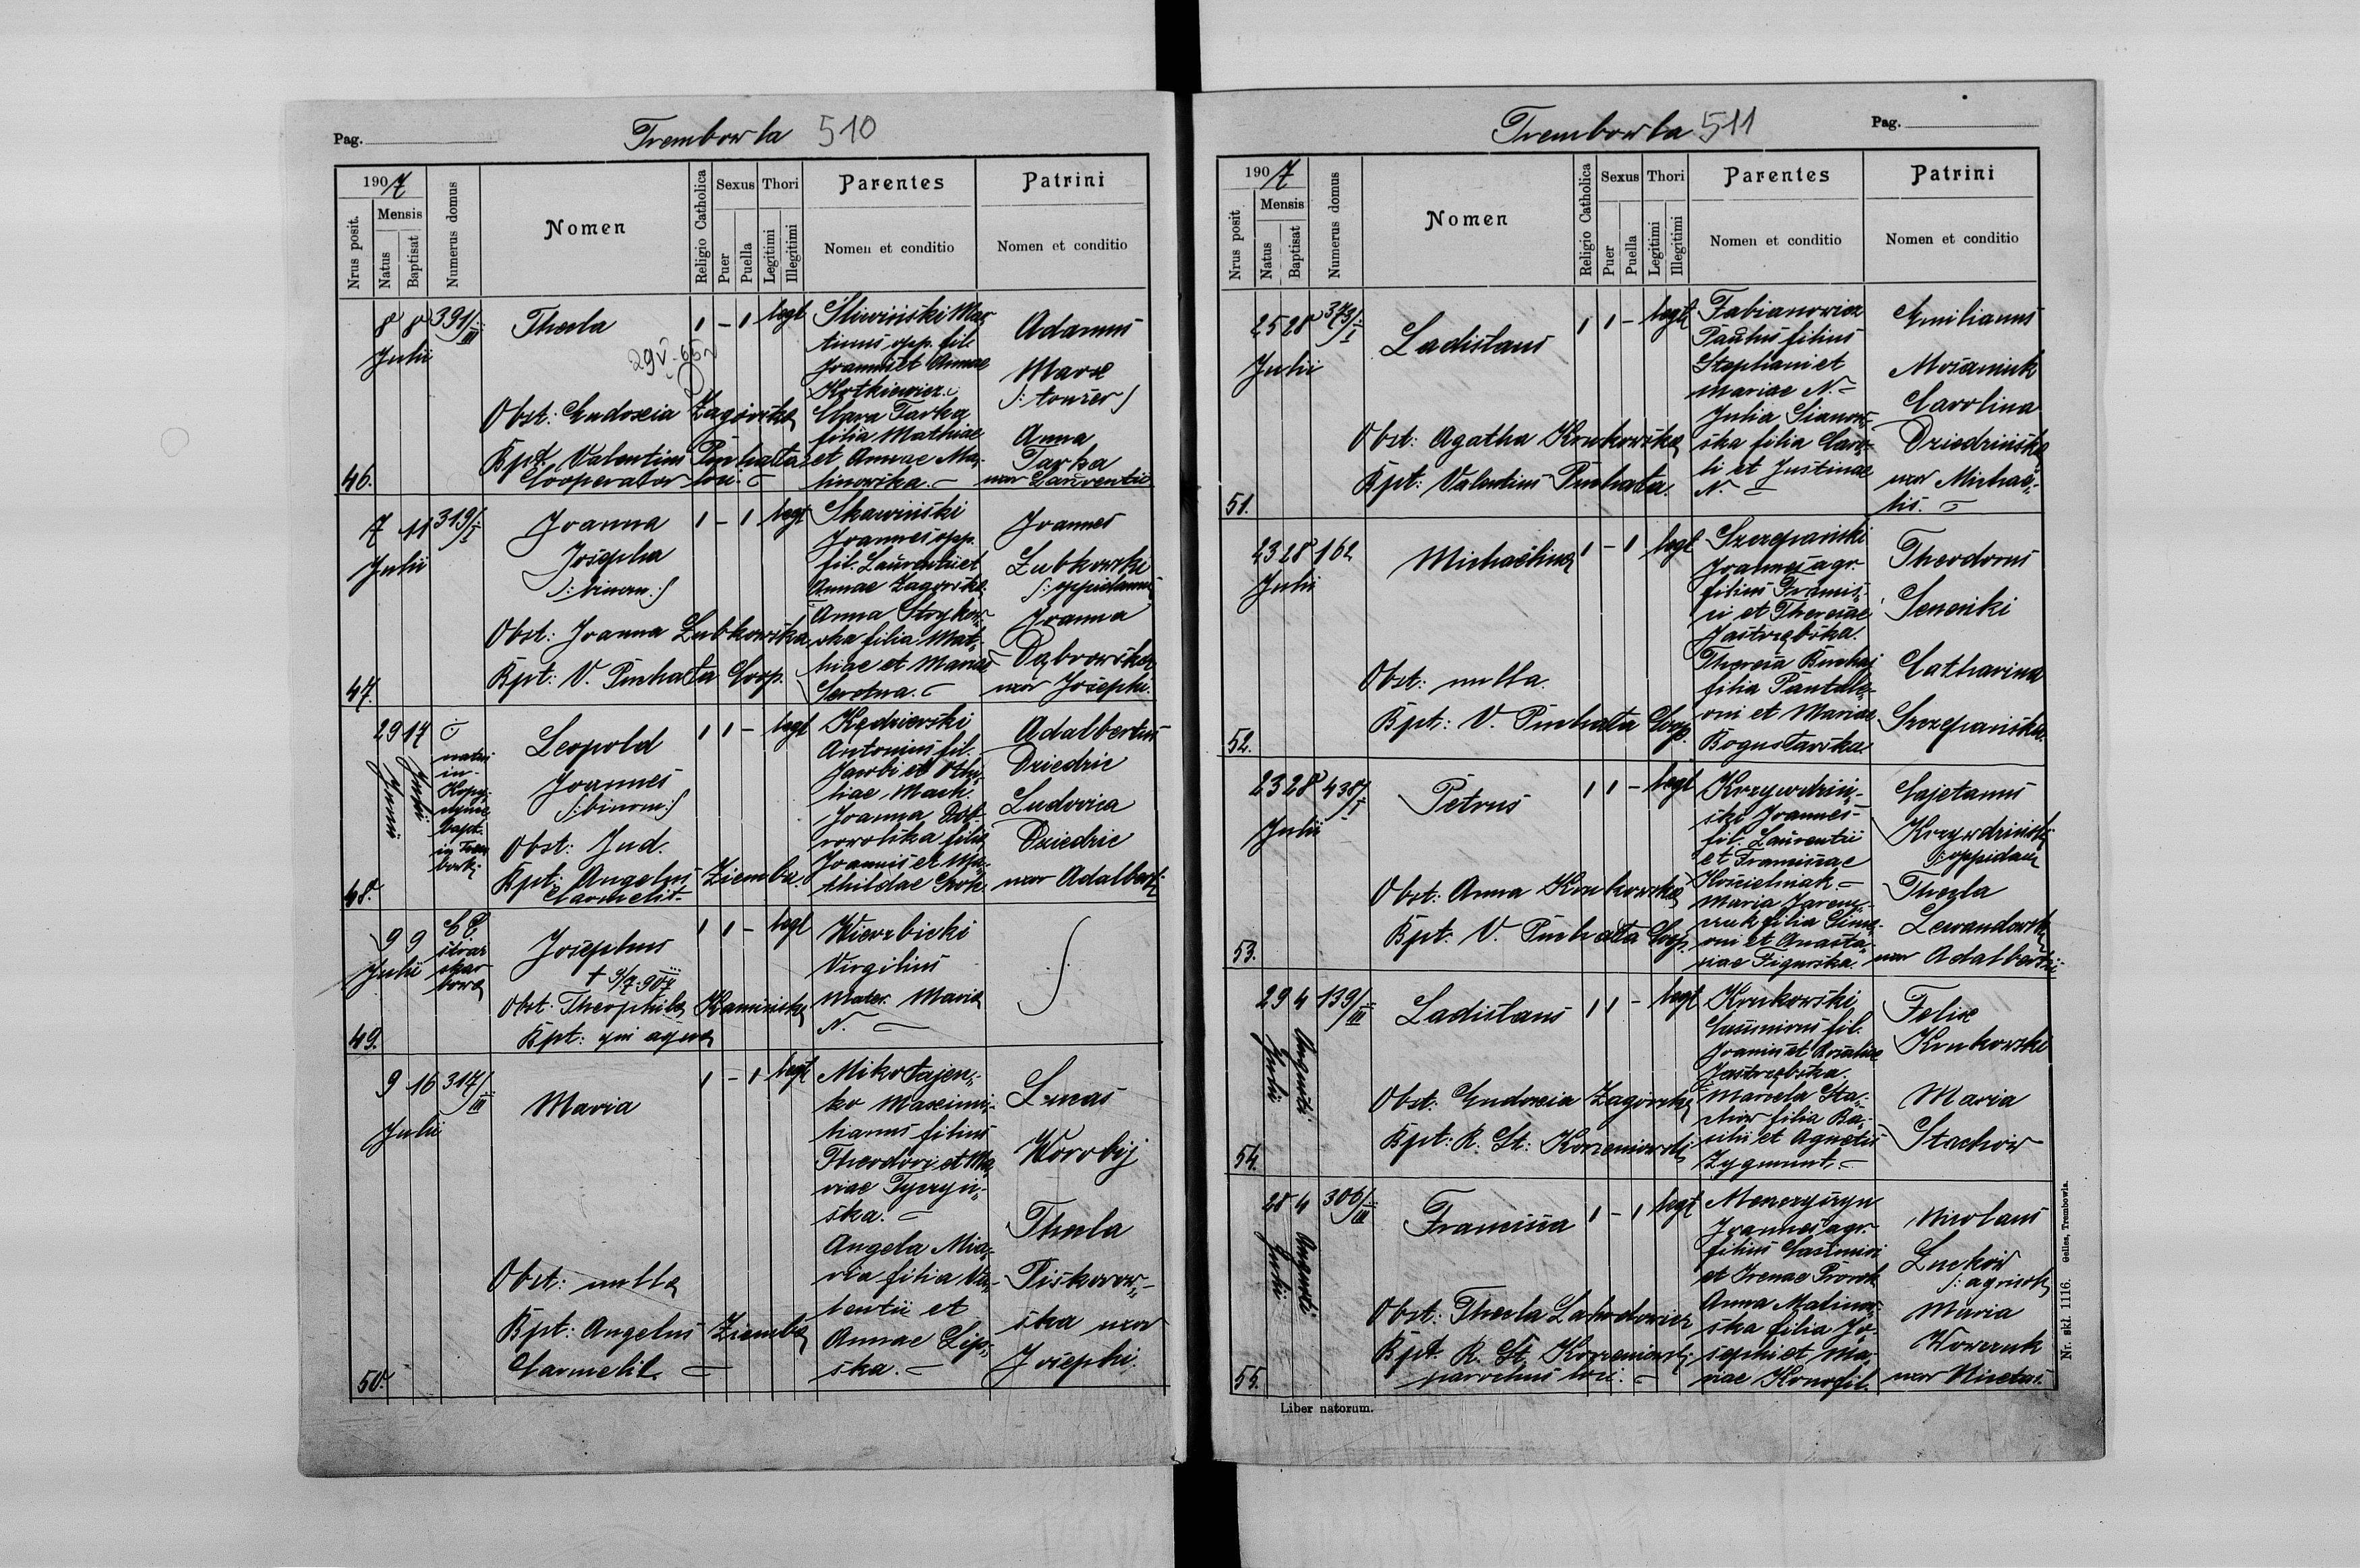 Pag.
Trembowla 510
1907
Nrus posit.
Mensis
Natus
Baptisat
Numerus domus
Nomen
Religio Catholica
Sexus
Puer
Puella
Thori
Legitimi
Illegitimi
Parentes
Nomen et conditio
Patrini
Nomen et conditio
46.
8 8
Julii
391/III
Thecla
Obst: Eudoxia Zagórska
Bpt. Valentius Puchała
Cooperator loci.
1 - 1 legt
Śliwiński Mar
tinus opp. fil.
Joannis et Annae
Kotkiewicz.
Clara Tarka
filia Mathiae
et Annae Ma-
linowska.
Adamus
Marx
/: tonsor /
Anna
Tarka
uxor Laurentii
47.
7 11
Julii
319/I
Joanna
Josepha
/: binom :/
Obst: Joanna Zubkowska
Bpt: V. Puchała Coop.
1 - 1 legt
Skawiński
Joannes opp.
fil. Laurentii et
Annae Zagórska
Anna Strykow-
ska filia Mat-
hiae et Mariae
Joannes
Zubkowski
/: oppidanus
Joanna
Dąbrowska
uxor Josephi.
48.
29 17
Junii Julii
natus
in
Kopy-
bapt.
in Trem
Leopold
Joannes
/: binom :/
Obst: Jud.
Bpt: Angelus Ziemba
Carmelit.
1 1 - legt
Kędzierski
Antonius fil.
Jacobi et Othi-
liae Mach.
Joanna Dob-
rowolska filia
Joannis et Ma-
thildae Groh
Adalbertus
Dziedzic
Ludovica
Dziedzic
uxor Adalberti
49.
9 9
Julii
Josephus
Obst: Theophila Kamińska
Bpt: qui aqua
1 1 - legt
Wierzbicki
Virgilius
Mater Maria
N.
50.
9 16
Julii
317/III
Maria
Obst: nulla
Bpt: Angelus Ziemba
Carmelit.
1 - 1 legt
Mikołajen-
ko Maximi-
lianus filius
Theodori et Ma
riae Tyczyń-
ska.
Angela Mia-
ria filia Va-
lentii et
Annae Lip-
ska.
Lucas
Worobij
Thecla
Piskorow-
ska uxor
Josephi.
Trembowla 511
Pag.
1907
Nrus posit
Mensis
Natus
Baptisat
Numerus domus
Nomen
Religio Catholica
Sexus
Puer
Puella
Thori
Legitimi
Illegitimi
Parentes
Nomen et conditio
Patrini
Nomen et conditio
51.
25 28
Julii
373/I
Ladislaus
Obst: Agatha Krukowska
Bpt: Valentius Puchała.
1 1 - legt
Fabianowicz
Paulus filius
Stephani et
Mariae N.
Julia Sianow-
ska filia Caro-
li et Justinae
N.
Emilianus
Carolina
Dziedzińska
uxor Michae-
lis.
52.
23 28
Julii
162
Michaëlina
Obst: nulla.
Bpt: V. Puchała Coop.
1 - 1 legt
Szczepański
Joannes agr.
filius Francis-
ci et Theresiae
Jastrzębska.
Theresia
filia Pantale-
oni et Mariae
Bogusławska
Theodorus
Senenki
Catharina
Szczepańska.
53.
23 28
Julii
438/I
Petrus
Obst: Anna Krukowska
Bpt. V. Puchała Coop.
1 1 - legt
Krzywdziń-
ski Joannes
fil. Laurentii
et Franciscae
Kościelniak
Maria Jarem-
czuk filia Sime-
oni et Anasta-
siae Figurska.
Cajetanus
Krzywdziński
/: oppidan
Thecla
Lewandowska
uxor Adalberti
54.
29 4
Julii Augusti
139/III
Ladislaus
Obst: Eudoxia Zagórska
Bpt: R. St: Korzeniowski
1 1 - legt
Krukowski
Casimirus fil.
Joannis et Rosaliae
Jastrzębska.
Marcela Sta-
chow filia Ba-
silii et Agnetis
Zygmunt.
Felix
Krukowski
Maria
Stachow
55.
28 4
Julii Augusti
306/III
Francisca
Obst: Thecla Labodowicz
Bpt. R. St. Korzeniowski
parochus loci.
1 - 1 legt
Joannes agr.
filius Casimiri
et Irenae
Anna Malinow-
ska filia Jo-
sephi et Ma-
riae Konofil.
Nicolaus
Luckow
/: agricola
Maria
Woweruk
uxor Nicetas.
Liber natorum.
Nr. skł. 1116. Gelles, Trembowla.